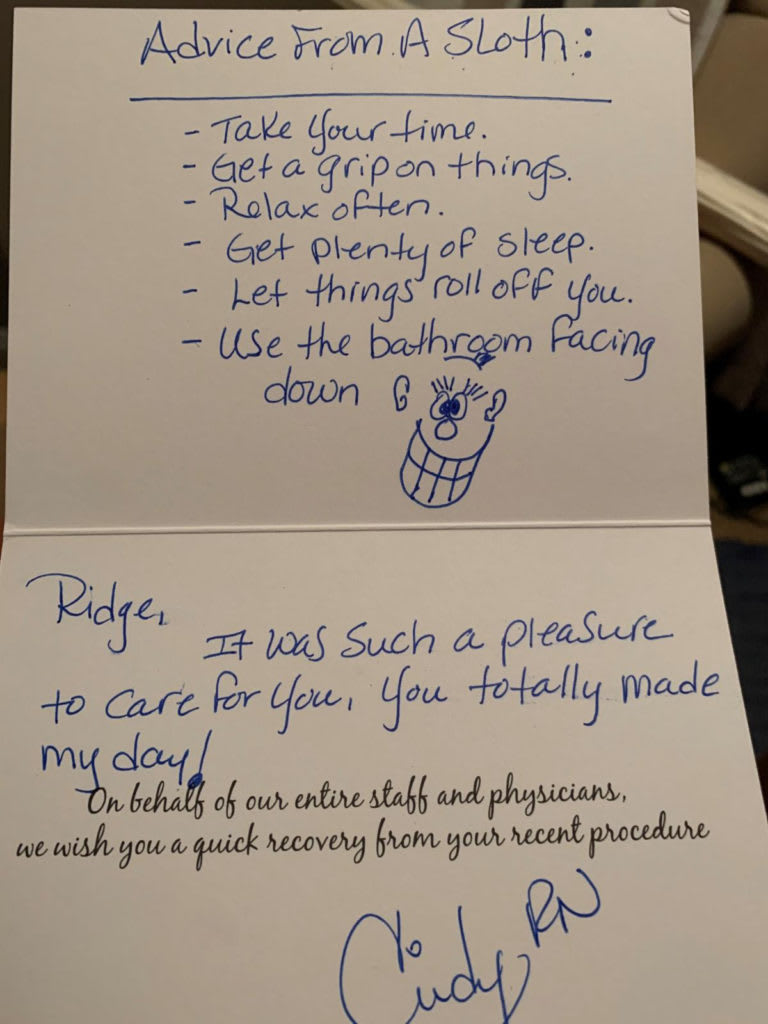 Advice From A Sloth:
- Take your time.
- Get a grip on things.
- Relax often.
- Get plenty of sleep.
- Let things roll off you.
- Use the bathroom facing
down
Ridge,
It was such a pleasure
to care for you, you totally made
my day!
On behalf of our entire staff and physicians,
we wish you a quick recovery from your recent procedure
Cindy, RN